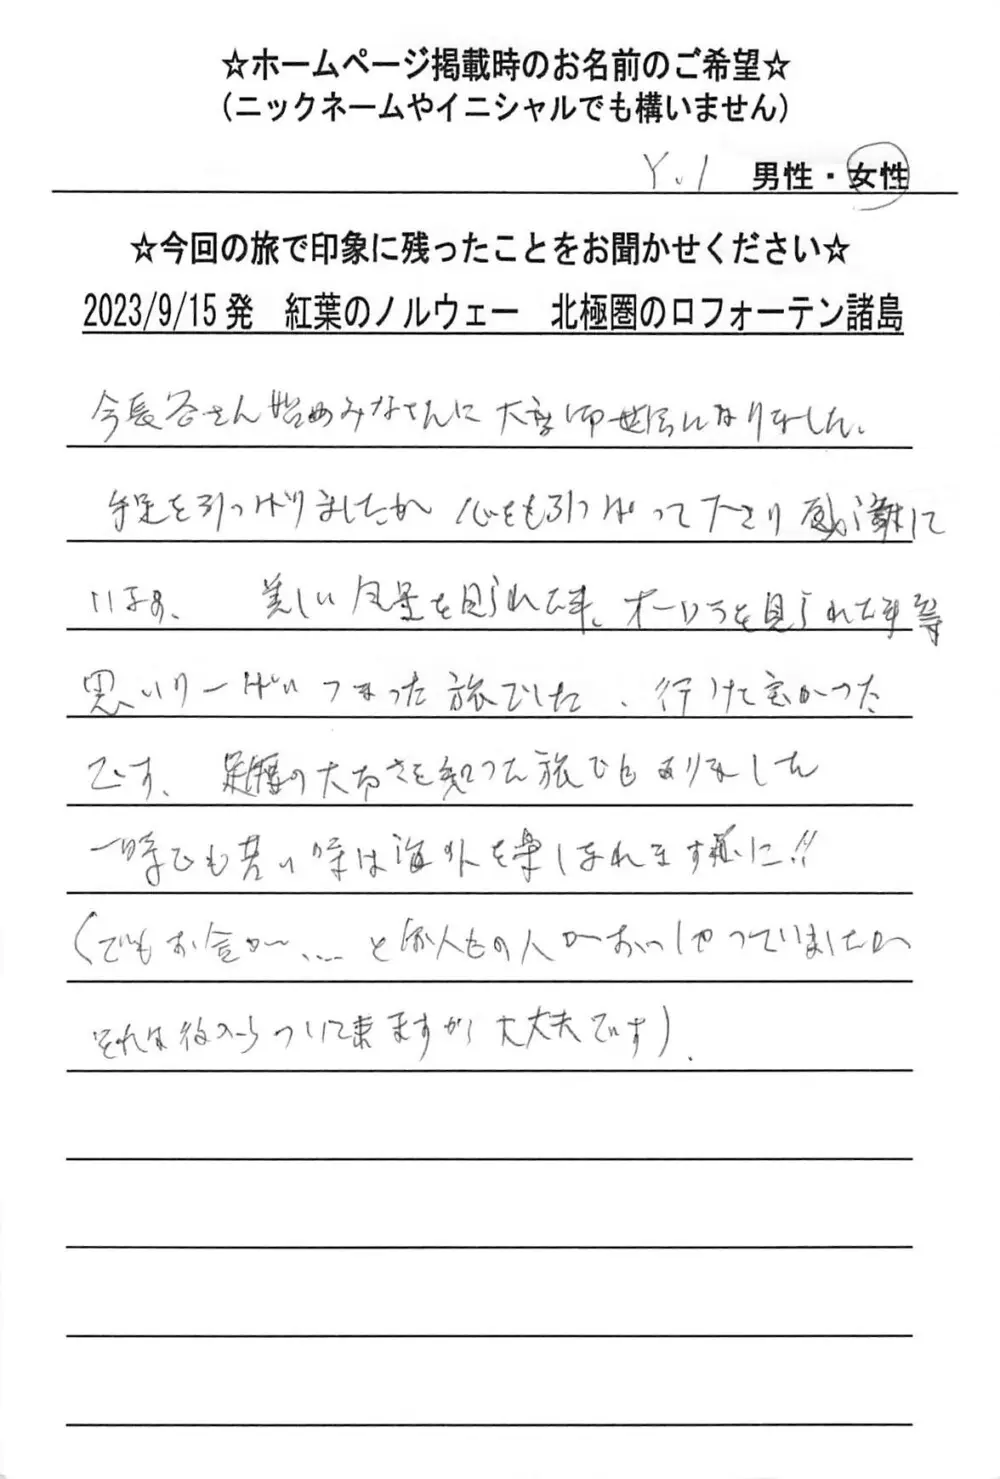 ☆ホームページ掲載時のお名前のご希望☆
（ニックネームやイニシャルでも構いません）
Y.I 男性・女性
☆今回の旅で印象に残ったことをお聞かせください☆
2023/9/15発 紅葉のノルウェー 北極圏のロフォーテン諸島
長谷さん始めみなさんに大変御世話になりました。
手足を引っぱりましたが 心をも引っぱって下さり 感謝して
います、 美しい風景を見られた事、オーロラを見られた事等
思いりーぱいつまった旅でした、行けて良かった
です、 足腰の大切さを知った旅でもありました
一時でも若い時は海外を楽しまれます様に!!
(でもお金が、.... と 人もの人がおっしゃっていましたが
それは後からついて来ますから大丈夫です).